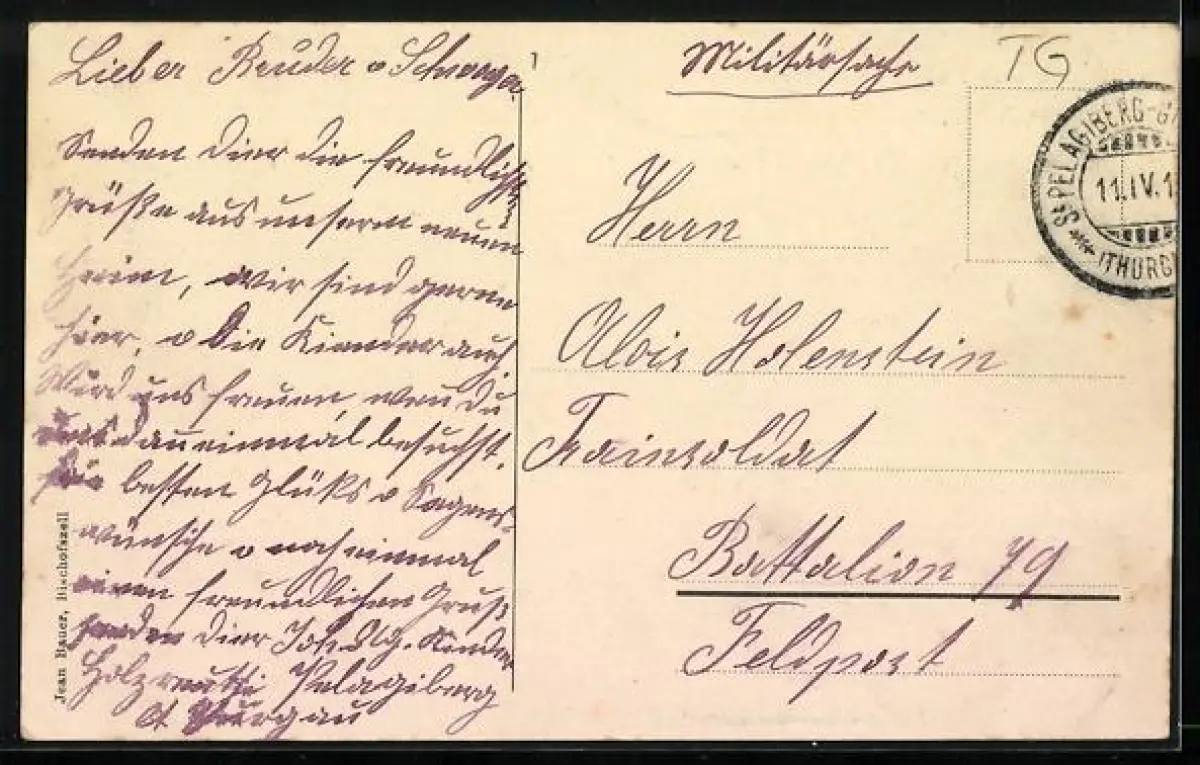 Lieber Bruder u Schwager
Senden Dier die freundlichste
Grüße aus unserm neuen
Heim, wir sind gerne
hier, u Die Kiender auch
Würd uns freuen, wen du
uns dan einmal besuchst.
besten Glüks u Segens-
wünsche u nocheinmal
einen freundlichen Gruß
senden Dier Joh. Kinder
Holzreutti Pelagiberg
Ct Thurgau
Militärsache
TG
ST PELAGIBERG-G
11.IV.1
(THURG
Herrn
Alois Holenstein
Trainsoldat
Battalion 79
Feldpost
Jean Bauer, Bischofszell